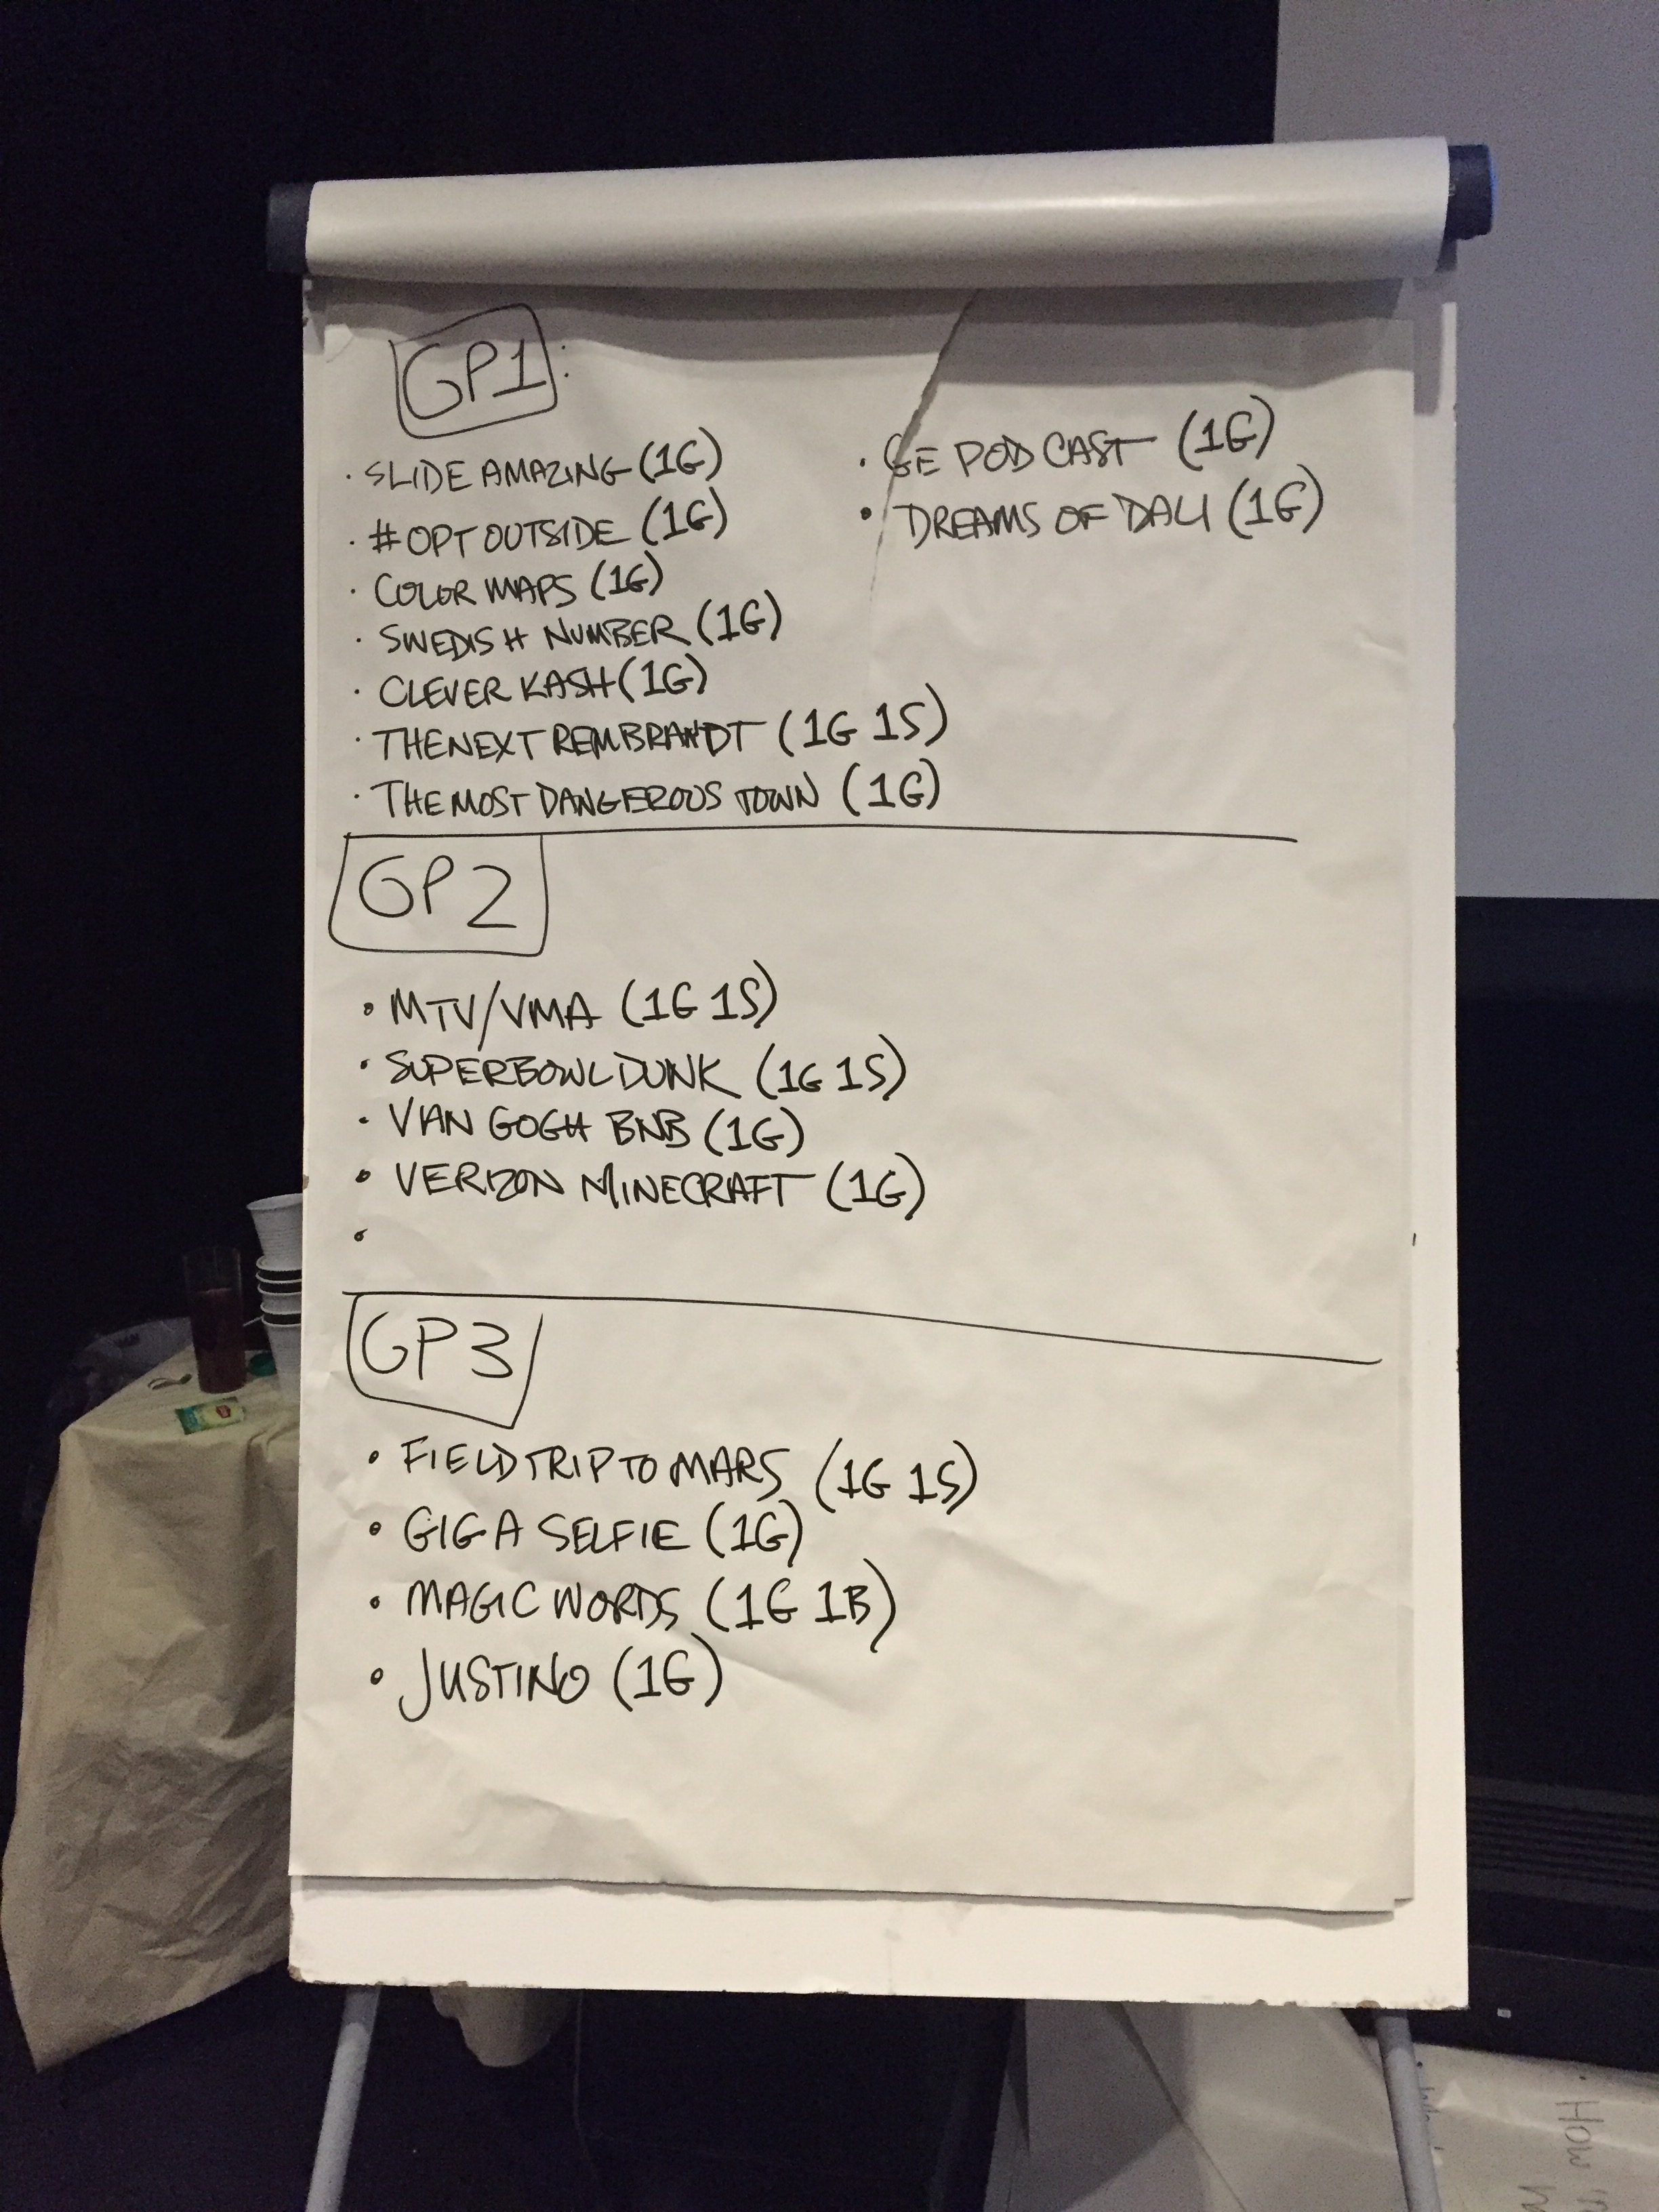 GP1:
· SLIDE AMAZING (1G)
· #OPTOUTSIDE (1G)
· COLOR MAPS (1G)
· SWEDISH NUMBER (1G)
· CLEVER KASH (1G)
· THE NEXT REMBRANDT (1G 1S)
· THE MOST DANGEROUS TOWN (1G)
· GE PODCAST (1G)
• DREAMS OF DALI (1G)
GP2
• MTV/VMA (1G 1S)
• SUPERBOWL DUNK (1G 1S)
• VAN GOGH BNB (1G)
• VERIZON MINECRAFT (1G)
•
GP3
• FIELD TRIP TO MARS (1G 1S)
• GIGA SELFIE (1G)
• MAGIC WORDS (1G 1B)
• JUSTINO (1G)
· HOW